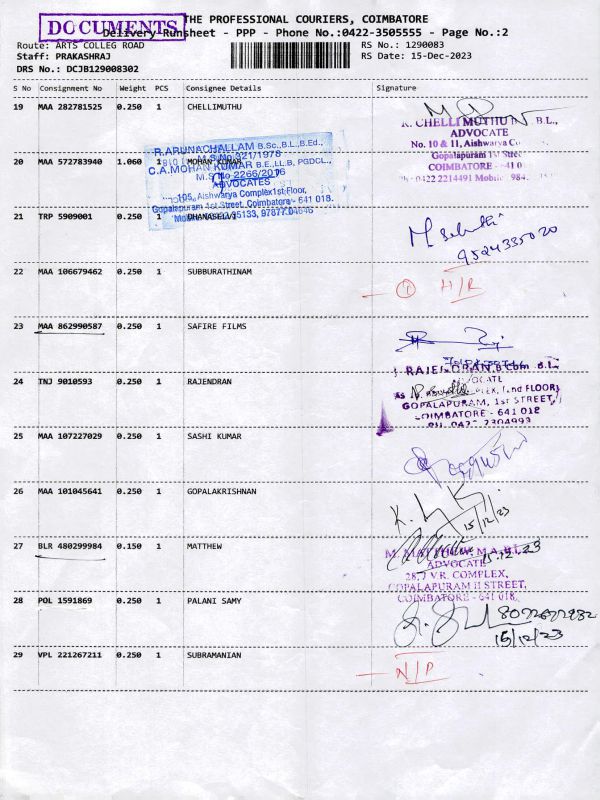 DOCUMENTS
THE PROFESSIONAL COURIERS, COIMBATORE
Delivery Runsheet - PPP - Phone No.:0422-3505555 - Page No.:2
Route: ARTS COLLEG ROAD
RS No.: 1290083
Staff: PRAKASHRAJ
RS Date: 15-Dec-2023
DRS No.: DCJB129008302
S No Consignment No Weight PCS Consignee Details Signature
19 MAA 282781525 0.250 1 CHELLIMUTHU
R. CHELLI MUTHU B.L.,
ADVOCATE
No. 10 & 11, Aishwarya
Gopalapuram 1st Street
COIMBATORE - 41
0422 2214491 Mobile 984
R.ARUNACHALLAM B.Sc.,B.L.,B.Ed.,
M.S.No 321/1978
20 MAA 572783940 1.060 1 MOHAN KUMAR
C.A.MOHAN KUMAR B.E.,LL.B, PGDCL.,
M.S.No 2266/2016
ADVOCATES
105, Aishwarya Complex 1st Floor,
Gopalapuram 1st Street, Coimbatore - 641 018.
21 TRP 5909001 0.250 1 DHANASELVI
9524335020
22 MAA 106679462 0.250 1 SUBBURATHINAM
H/R
23 MAA 862990587 0.250 1 SAFIRE FILMS
RAJENDRAN, B.Com B.L.
24 TNJ 9010593 0.250 1 RAJENDRAN
FLOOR)
GOPALAPURAM, 1st STREET,
COIMBATORE - 641 018
PH. 0422 2304993
25 MAA 107227029 0.250 1 SASHI KUMAR
26 MAA 101045641 0.250 1 GOPALAKRISHNAN
15/12/23
27 BLR 480299984 0.150 1 MATTHEW
15.12.23
M. MATTHEW, M.A., B.L.
ADVOCATE
28,7 V.R. COMPLEX,
GOPALAPURAM II STREET,
COIMBATORE - 641 018.
28 POL 1591869 0.250 1 PALANI SAMY
15/12/23
29 VPL 221267211 0.250 1 SUBRAMANIAN
N/P